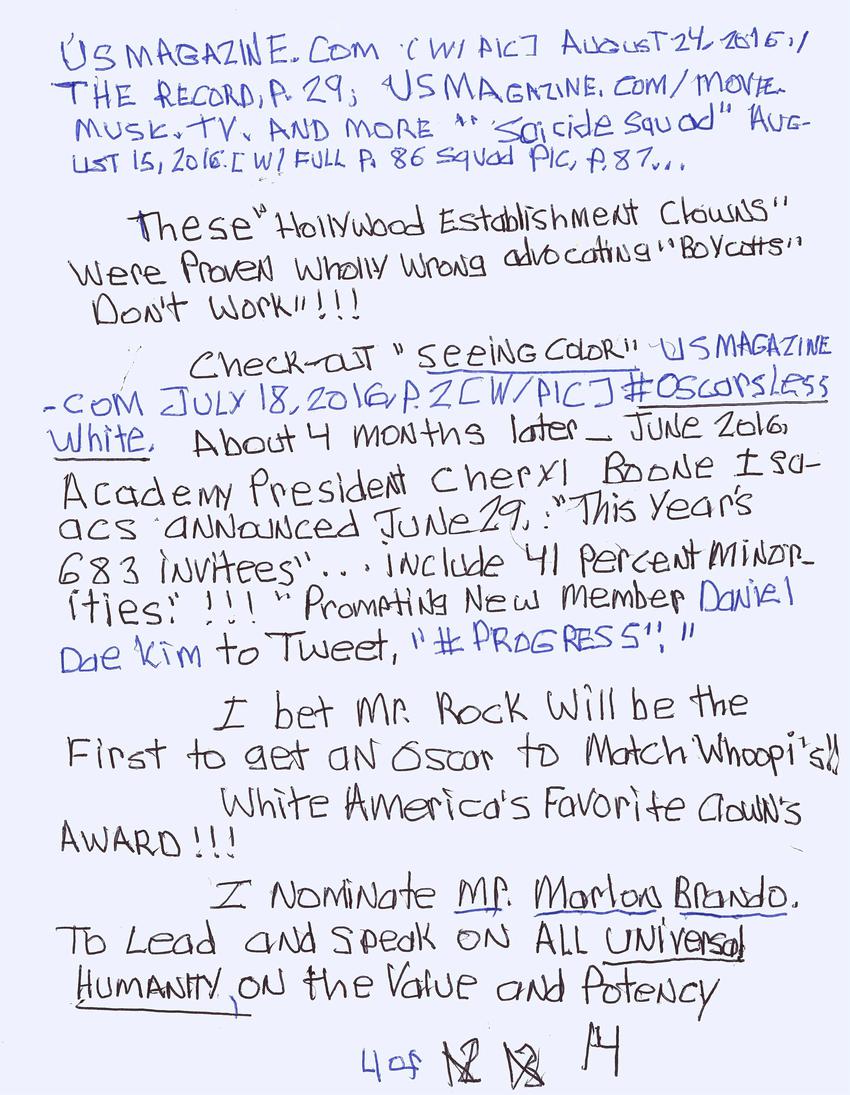 USMAGAZINE.COM (W/ PIC] AUGUST 24, 2016;/
THE RECORD, P. 29; USMAGAZINE.COM/MOVIE.
MUSK.TV. AND MORE "'Suicide Squad" AUG-
UST 15, 2016.[W/ FULL P. 86 Squad PIC, P. 87...
These "Hollywood Establishment Clowns"
Were Proven Wholly Wrong advocating "Boycotts"
Don't Work"!!!
Check-out "SEEING COLOR" US MAGAZINE
-COM JULY 18, 2016, P. 2 [W/PIC] #OscorsLess
White. About 4 months later _ JUNE 2016,
Academy President Cheryl Boone Isa-
acs announced June 29, :"This Year's
683 invitees"... include 41 percent Minor-
ities:" !!! " Prompting New Member Daniel
Dae Kim to Tweet, "#PROGRESS"."
I bet Mr. Rock Will be the
First to get an Oscar to Match Whoopi's!!
White America's Favorite Clown's
AWARD!!!
I Nominate Mr. Marlon Brando.
To Lead and Speak on ALL Universal
HUMANITY, on the Value and Potency
4 of 14